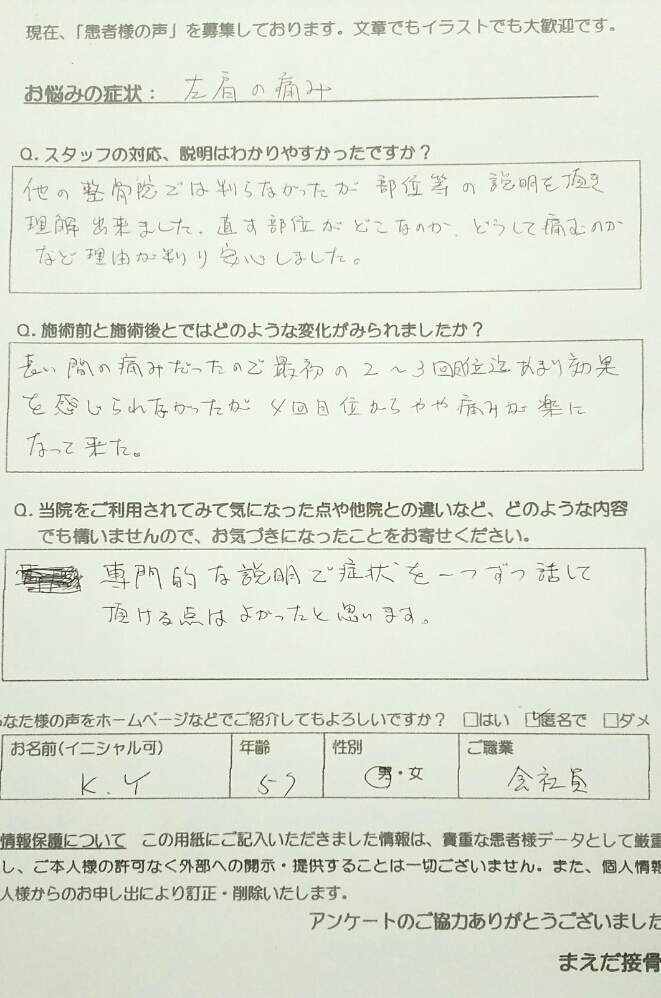 現在、「患者様の声」を募集しております。文章でもイラストでも大歓迎です。
お悩みの症状： 左肩の痛み
Q. スタッフの対応、説明はわかりやすかったですか？
他の整骨院では判らなかったが 部位等の説明を頂き
理解出来ました。直す部位がどこなのか、どうして痛むのか
など理由が判り安心しました。
Q. 施術前と施術後とではどのような変化がみられましたか？
長い間の痛みだったので最初の2〜3回目位迄あまり効果
を感じられなかったが 4回目位からやや痛みが楽に
なって来た。
Q. 当院をご利用されてみて気になった点や他院との違いなど、どのような内容
でも構いませんので、お気づきになったことをお寄せください。
専門的な説明で症状を一つずつ話して
頂ける点はよかったと思います。
なた様の声をホームページなどでご紹介してもよろしいですか？ □はい ☑匿名で □ダメ
お名前(イニシャル可) 年齢 性別 ご職業
K.Y 57 男・女 会社員
情報保護について この用紙にご記入いただきました情報は、貴重な患者様データとして厳重
し、ご本人様の許可なく外部への開示・提供することは一切ございません。また、個人情報
人様からのお申し出により訂正・削除いたします。
アンケートのご協力ありがとうございました
まえだ接骨